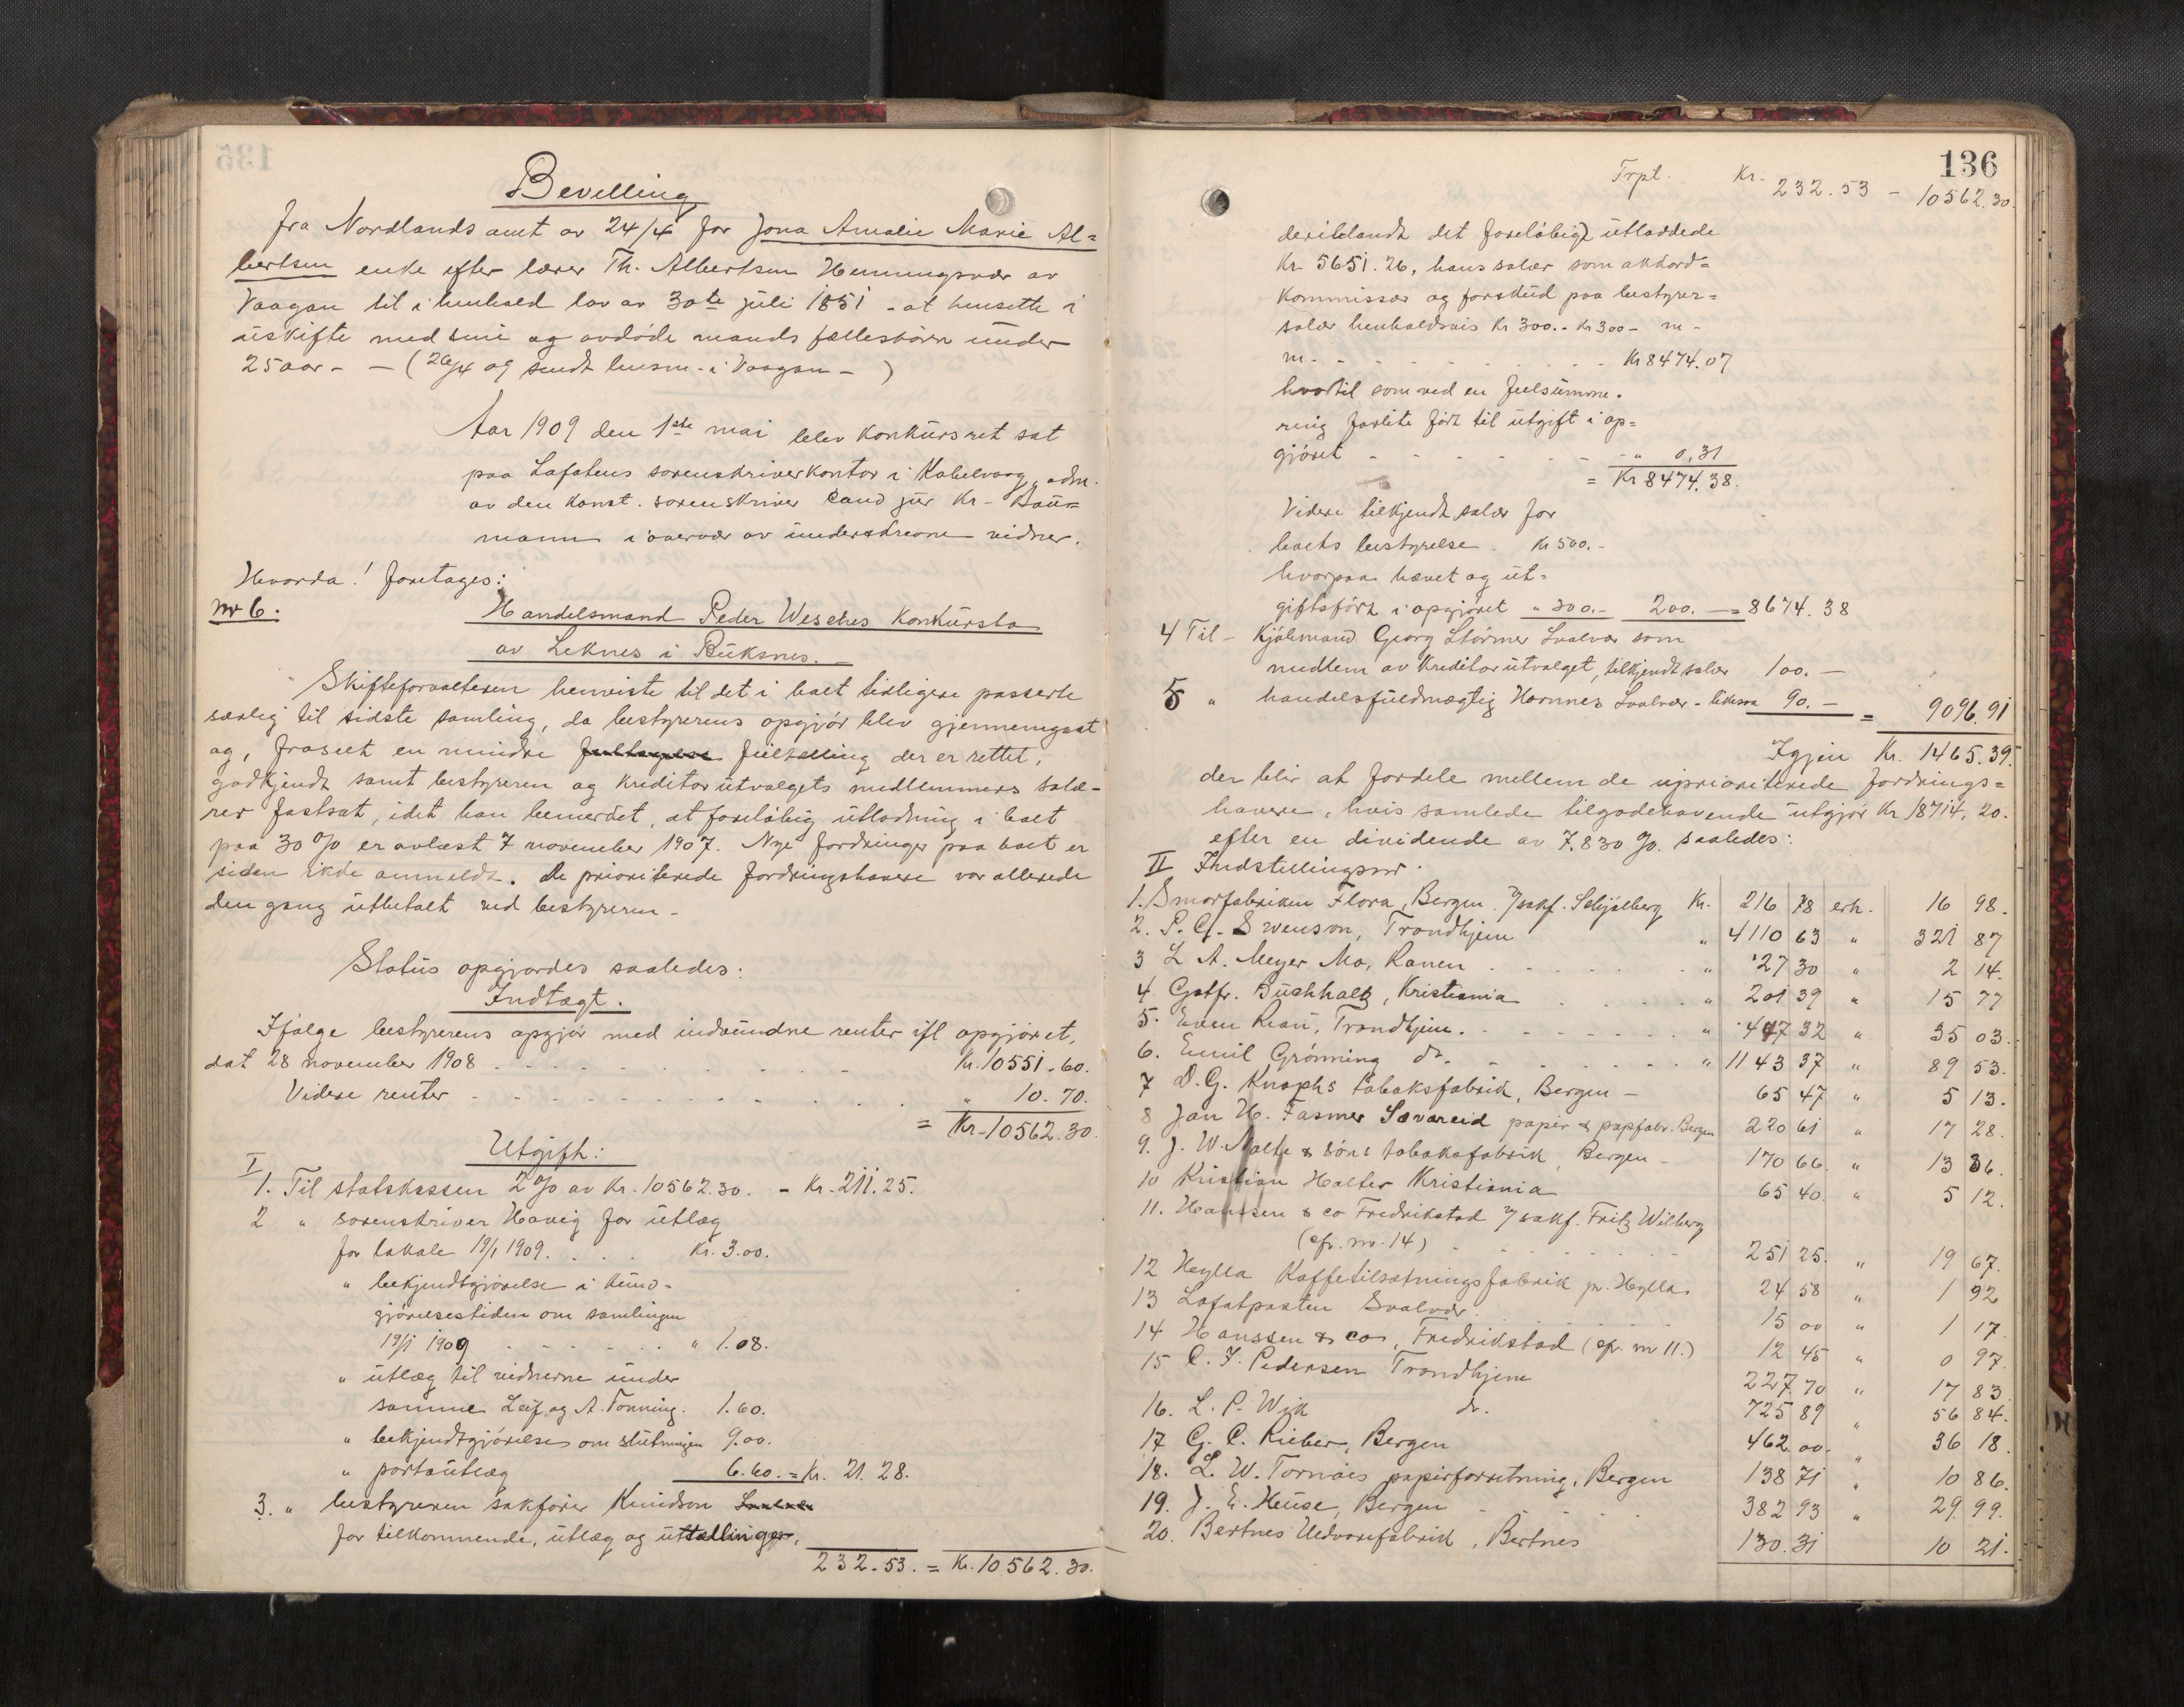 Bevilling
fra Nordlands amt av 24/4 for Jona Amalie Marie Al=
bertsen enke efter lærer Th. Albertsen Henningsvær av
Vaagan til i henhold lov av 30te juli 1851 - at hensitte i
uskifte med sine og avdøde mands fællesbörn under
25 aar - - (26/4 09 sendt lensm. i Vaagan - )
Aar 1909 den 1ste mai blev konkursret sat
paa Lofotens sorenskriverkontor i Kabelvaag, adm.
av den konst. sorenskriver cand jur Kr. Bau=
mann i overvær av underskrevne vidner.
Hvorda! foretages:
nr 6.
Handelsmand Peder Wesches konkursbo
av Leknes i Buksnes.
Skifteforvalteren henviste til det i boet tidligere passerte
særlig til sidste samling, da bestyrerens opgjør blev gjennemgaat
og, fraseet en mindre feiltælling der er rettet,
godkjendt samt bestyreren og kreditorutvalgets medlemmers salæ-
rer fastsat, idet han bemerket, at foreløbig utlodning i boet
paa 30 % er avlæst 7 november 1907. Nye fordringer paa boet er
siden ikke anmeldt. De prioriterede fordringshavere var allerede
den gang utbetalt ved bestyreren -
Status opgjordes saaledes:
Indtægt.
Ifølge bestyrerens opgjør med indvundne renter ifl opgjøret,
dat 28 november 1908 . . . Kr. 10551.60.
Videre renter - - - " 10.70.
= Kr. 10562.30.
Utgift:
I
1. Til statskassen 2 % av Kr. 10562.30. - Kr. 211.25.
2 " sorenskriver Havig for utlæg
for lokale 19/1 1909. . . . Kr. 3.00.
" bekjendtgjørelse i Kund-
gjørelsestidende om samlingen
19/1 1909 . . . " 1.08.
" utlæg til vidnerne under
samme Leif og A. Tonning. 1.60.
" bekjendtgjørelse om slutningen 9.00.
" portoutlæg 6.60. = Kr. 21.28.
3. " bestyreren sakfører Knudson
for tilkommende, utlæg og uttællinger,
232.53. = Kr. 10562.30.
136
Trpt. Kr. 232.53 - 10562.30.
deriblandt det foreløbigt utloddede
Kr 5651.26, hans salær som akkord=
kommissær og forskud paa bestyrer=
salær henholdsvis Kr 300.- Kr 300 - m -
m. - - - Kr 8474.07
hvortil som ved en feilsumme.
ring forlite ført til utgift i op=
gjøret - - - " 0,31
= Kr 8474.38.
Videre tilkjendt salær for
boets bestyrelse. Kr 500.-
hvorpaa hævet og ut=
giftsført i opgjøret " 300.- 200. - = 8674.38
4 Til - Kjøbmand Georg Størmer Svolvær som
medlem av kreditorutvalget, tilkjendt salær 100. -
5 " handelsfuldmægtig Hornnes Svolvær - likesaa 90. - = 9096.91
Igjen Kr. 1465.39.
der blir at fordele mellem de uprioriterede fordrings=
havere, hvis samlede tilgodehavende utgjør Kr 18714,20.
efter en dividende av 7.830 %. saaledes:
II Indstillingsnr.
1. Smørfabriken Flora, Bergen. v/sakf. Schjølberg Kr. 216 78 erh. 16 98.
2. P. G. Svenson, Trondhjem " 4110 63 " 321 87
3 L A. Meyer Mo, Ranen . . . " 27 30 " 2 14.
4 Gotfr. Buchholtz, Kristiania . . . " 201 39 " 15 77
5. Even Rian, Trondhjem. - - - " 447 32 " 35 03.
6. Emil Grønning do. - - - " 1143 37 " 89 53.
7 D. G. Knophs tobaksfabrik, Bergen - 65 47 " 5 13.
8 Jan H. Fasmer Sævareid papir & papfabr. Bergen 220 61 " 17 28.
9. J. W. Nolte & søns tobaksfabrik, Bergen - 170 66. " 13 36.
10 Kristian Holter Kristiania 65 40. " 5 12.
11. Hanssen & co Fredrikstad v/sakf. Fritz Wilberg
(cfr. nr. 14) . . . 251 25. " 19 67.
12 Hylla Kaffetilsætningsfabrik pr. Hylla 24 58 " 1 92
13 Lofotposten Svolvær. 15 00 " 1 17
14 Hanssen & co, Fredrikstad (cfr. nr 11.) 12 45 " 0 97.
15 C. F. Pedersen Trondhjem 227 70 " 17 83
16. L. P. Wik do. 725 89 " 56 84.
17 G. C. Rieber, Bergen 462 00. " 36 18.
18. L. W. Tornøes papirforretning, Bergen 138 71 " 10 86.
19. J. E. Heuse, Bergen . . . 382 93 " 29. 99.
20. Bertnes Uldvarefabrik, Bertnes 130. 31 10 21.